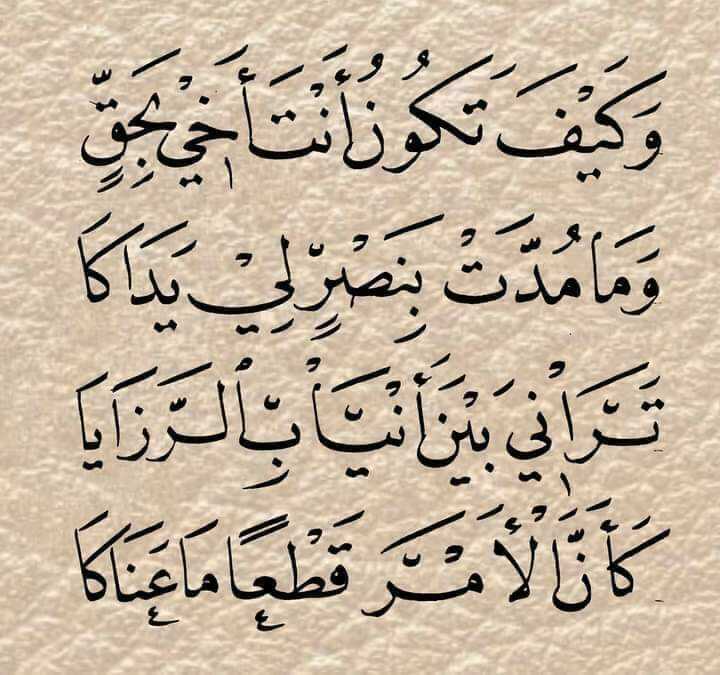 وَكَيْفَ تَكُونُ أَنْتَ أَخِيْ بِحَقٍّ
وَمَا مُدَّتْ بِنَصْرٍ لِيْ يَدَاكَا
تَرَانِي بَيْنَ أَنْيَابِ الرَّزَايَا
كَأَنَّ الْأَمْرَ قَطْعًا مَا عَنَاكَا